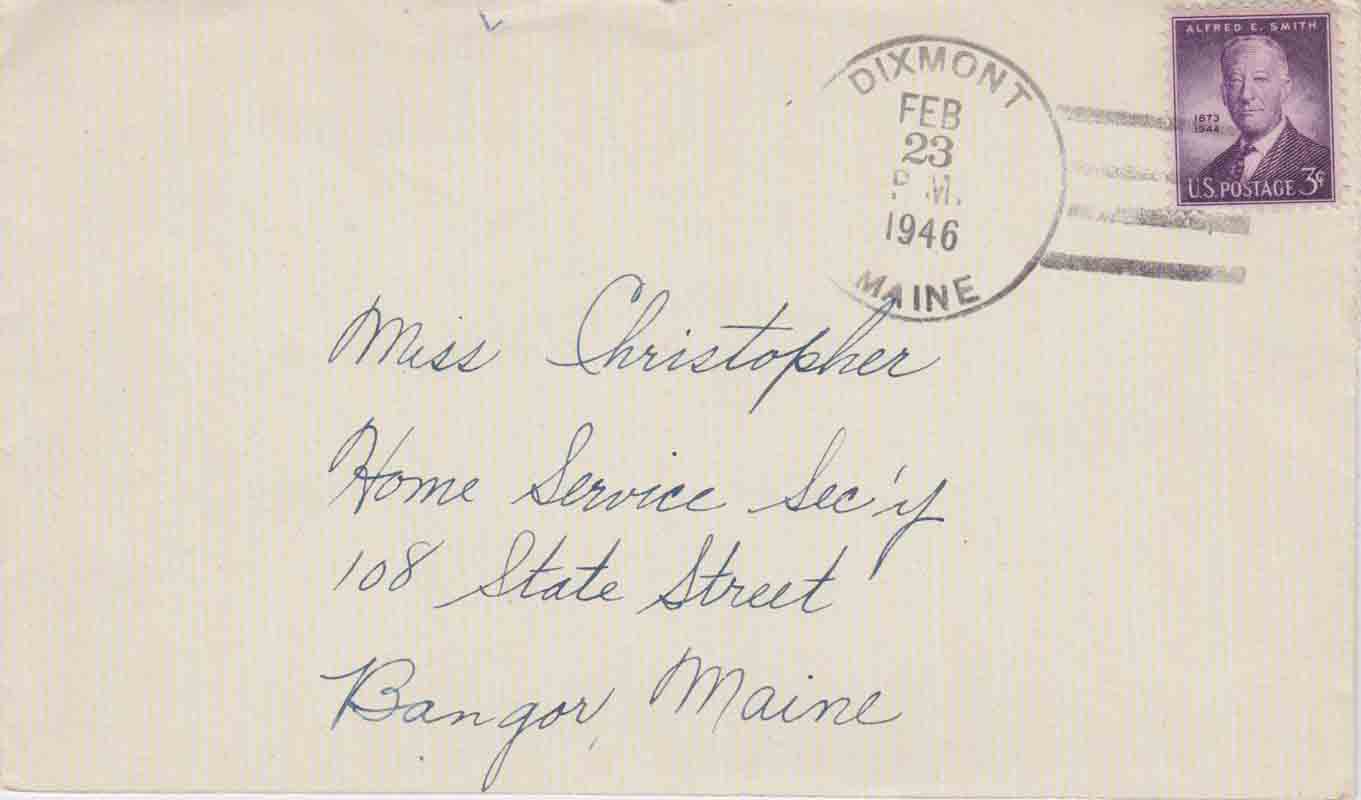 ALFRED E. SMITH
1873
1944
U.S. POSTAGE 3¢
DIXMONT
FEB
23
P.M.
1946
MAINE
Miss Christopher
Home Service Sec'y
108 State Street
Bangor, Maine